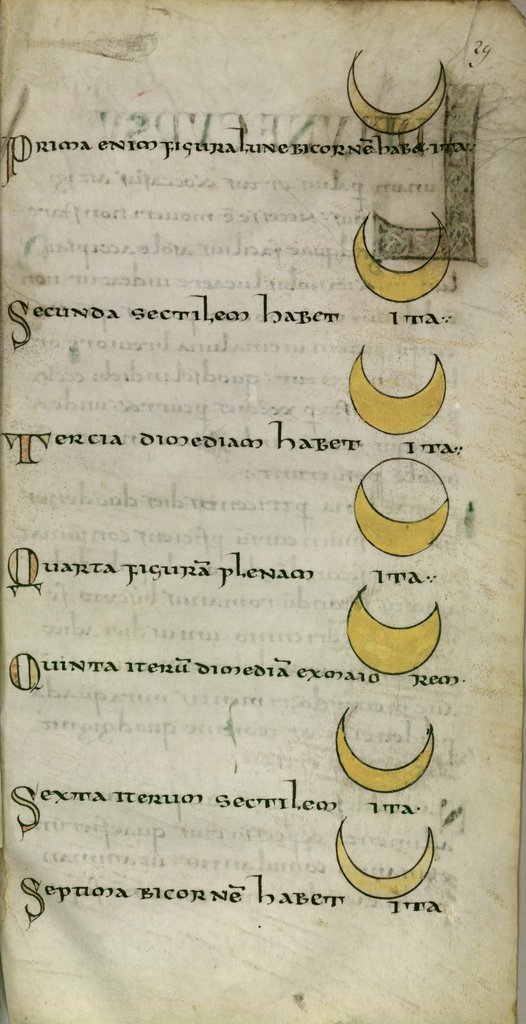 29
Prima enim figura lune bicornē habet ita
Secunda sectilem habet ita
Tercia dimediam habet ita
Quarta figurā plenam ita
Quinta iterū dimediā ex maiorem
Sexta iterum sectilem ita
Septima bicornē habet ita